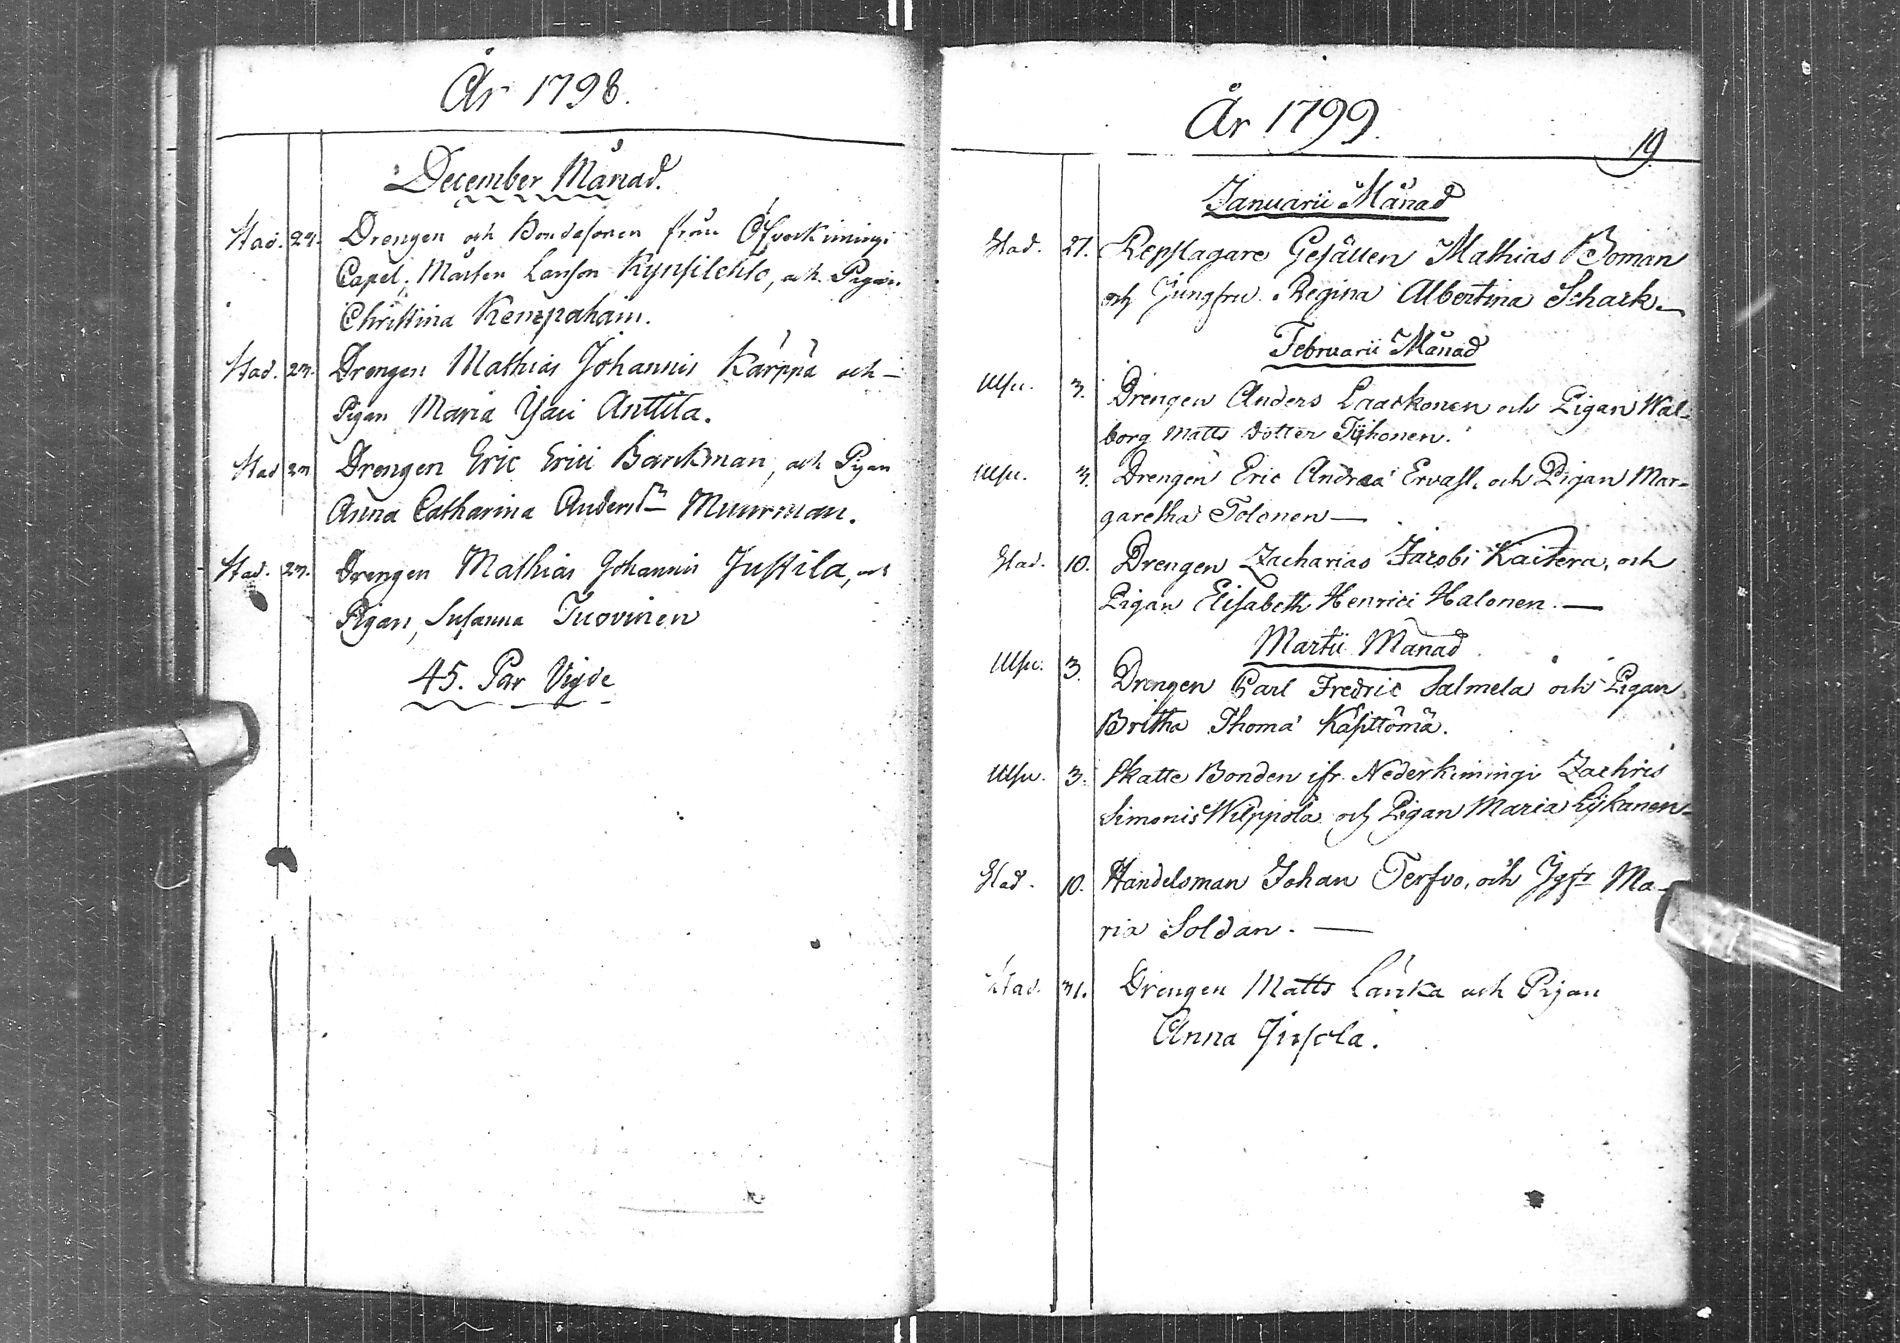 År 1798.
December Månad.
Stad. 23. Drengen och Bondesonen från Öfverkimingi
Capel, Mårten Larsson Kynsilehto, och Pigan
Christina Kempahain.
Stad. 23. Drengen Mathias Johannis Kärppä och
Pigan Maria Anttila.
Stad 23 Drengen Eric Erici Barckman, och Pigan
Anna Catharina Andersdr Muurman.
Stad. 23. Drengen Mathias Johannis Juslila, och
Pigan, Susanna Tuovinen
45. Par Vigde
År 1799.
19.
Januarii Månad
Stad. 27. Repslagare Gesällen Mathias Boman
och Jungfru Regina Albertina Schark.
Februarii Månad
Ulsu. 3. Drengen Anders Laackonen och Pigan Wal-
borg Matts dotter Tyhonen.
Ulsu. 3. Drengen Eric Andreæ Ervast, och Pigan Mar-
garetha Tolonen
Stad. 10. Drengen Zacharias Jacobi Kaitera, och
Pigan Elisabeth Henrici Halonen.
Martii Månad
Ulsu. 3. Drengen Carl Fredric Salmela och Pigan
Britha Thomæ Käsittömä.
Ulsu. 3. Skatte Bonden ifr. Nederkimingi Zachris
Simonis Wilppola och Pigan Maria Lyskanen
Stad. 10. Handelsman Johan Terfvo, och Jgfr Ma-
ria Soldan.
Stad. 31. Drengen Matts Länka och Pigan
Anna